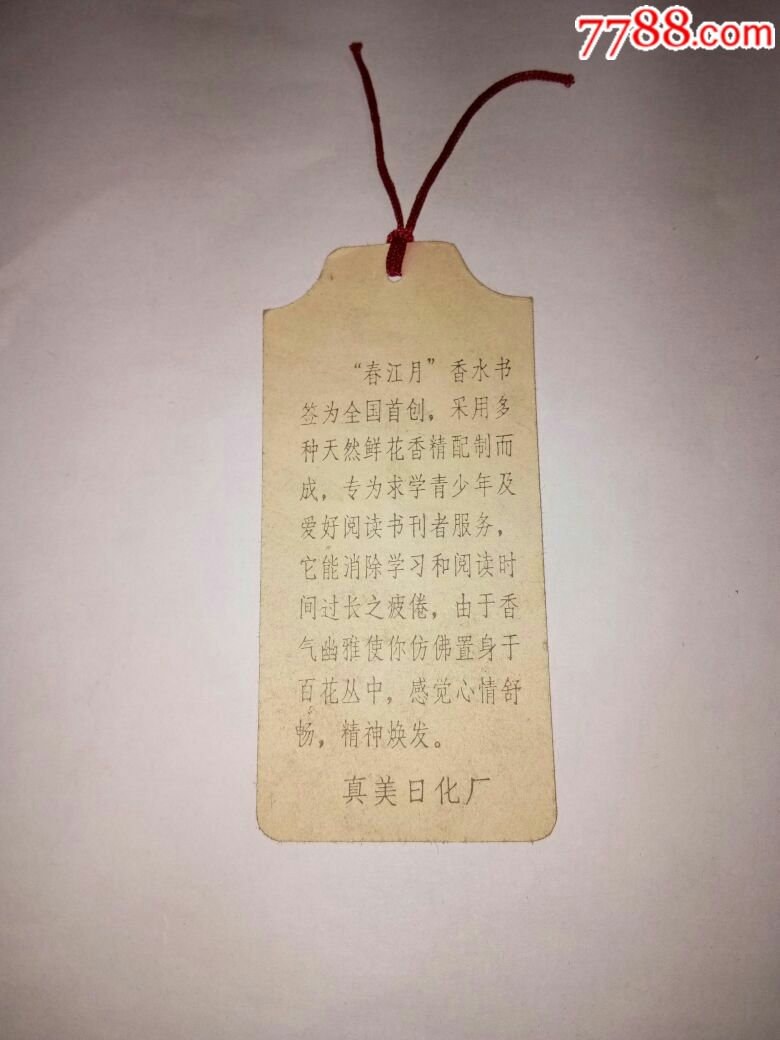 7788.com
“春江月”香水书
签为全国首创，采用多
种天然鲜花香精配制而
成，专为求学青少年及
爱好阅读书刊者服务，
它能消除学习和阅读时
间过长之疲倦，由于香
气幽雅使你仿佛置身于
百花丛中，感觉心情舒
畅，精神焕发。
真美日化厂